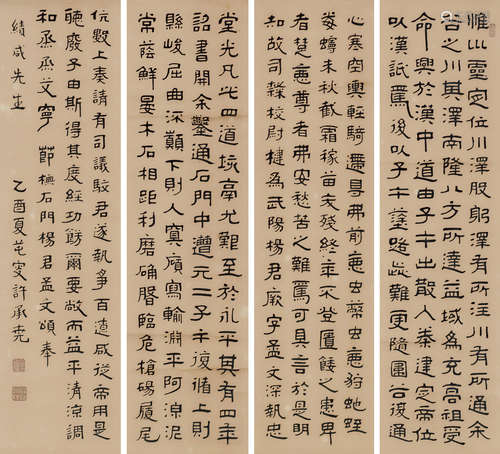 惟巛靈定位川澤股躬澤有所通余
谷之川其澤南隆八方所達益域為充高祖受
命興於漢中道由子午出散入秦建定帝位
以漢詆焉後以子午塗路歰難更隨圍谷復通
心塞空輿輕騎遰㝵弗前惡虫惡狩虵蛭
毒蟃未秋截霜稼苗夭殘終年不登匱餧之患卑
者楚惡尊者弗安愁苦之難焉可具言於是明
知故司隸校尉楗為武陽楊君厥字孟文深執忠
堂光凡此四道垓鬲尤艱至於永平其有四年
詔書開余鑿通石門中遭元二子午復循上則
縣峻屈曲流顛下則入冥廎寫輸淵平阿湶泥
常蔭鮮晏木石相距利磨确磐臨危槍碭履尾
伉數上奏請有司議駮君遂執爭百遼咸從帝用是
聽廢子由斯得其度經功飭爾要敞而益平清涼調
和烝烝艾寧 節橅石門楊君孟文頌奉
績咸先生 乙酉夏芚叟許承堯